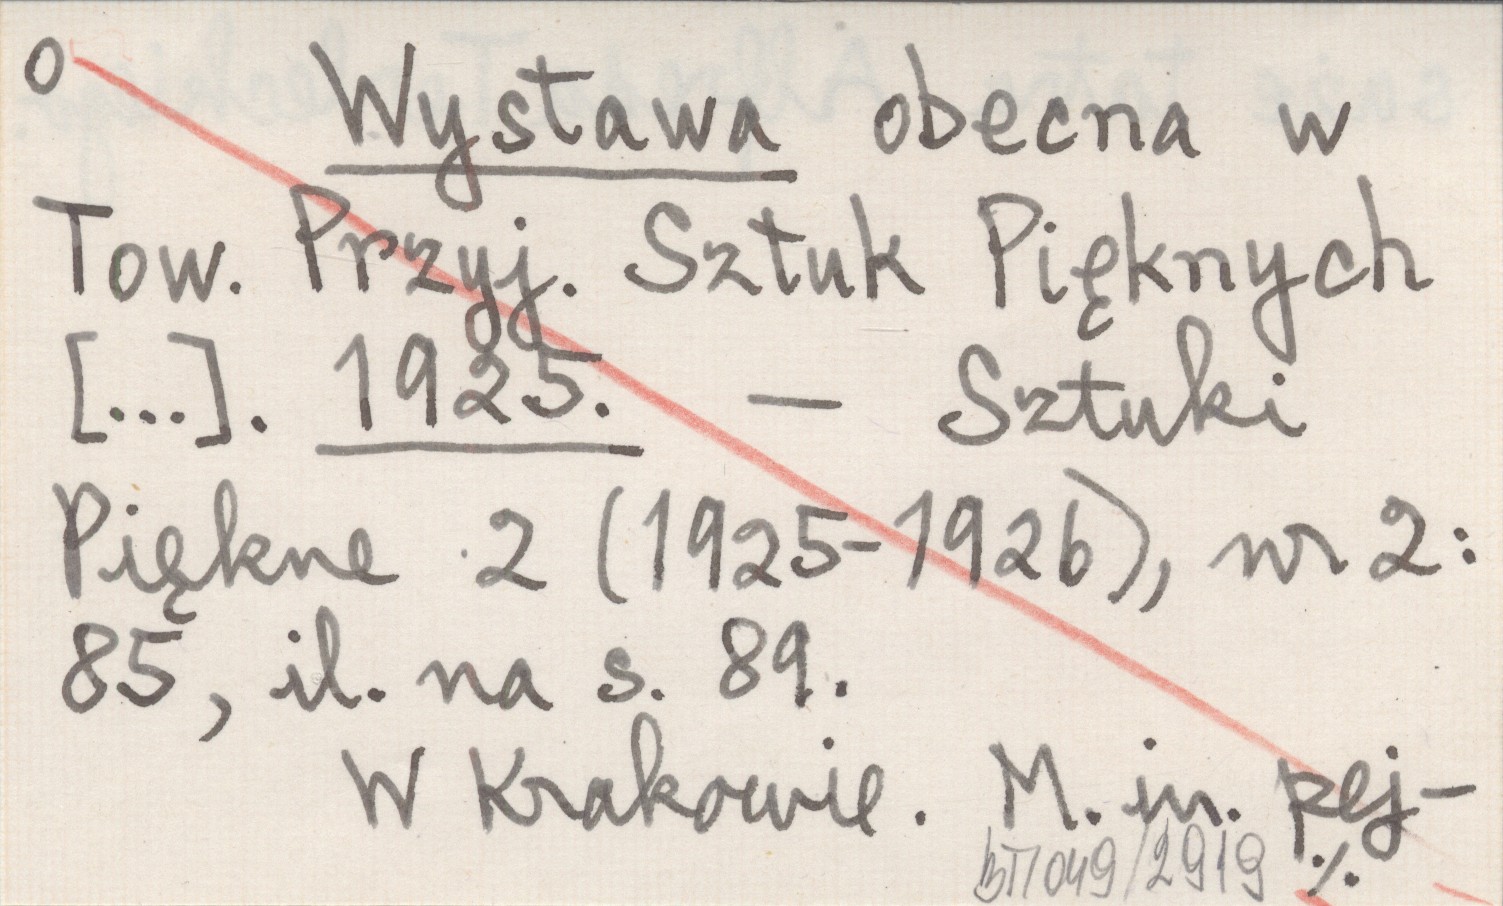 O Wystawa obecna w
Tow. Przyj. Sztuk Pięknych
[...]. 1925. — Sztuki
Piękne 2 (1925-1926), nr 2:
85, il. na s. 89.
W Krakowie. M. in. pej-
049/2919 ./.